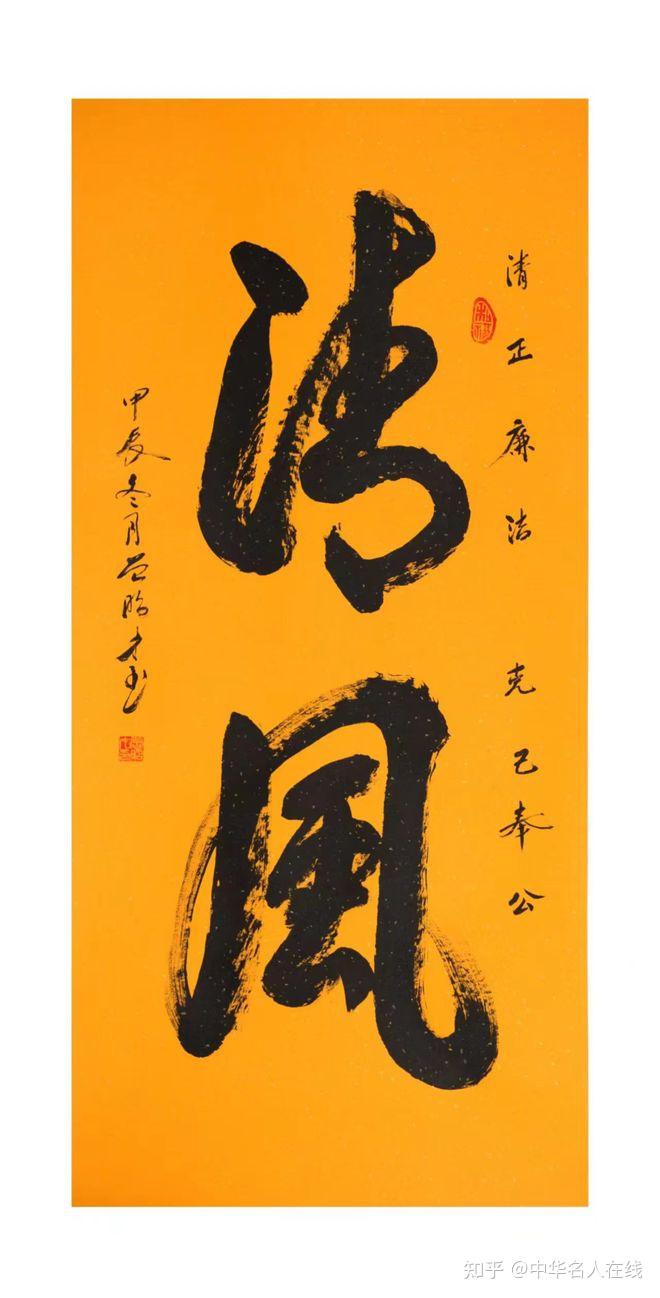 清正廉洁 克己奉公
清风
甲辰冬月
知乎 @中华名人在线